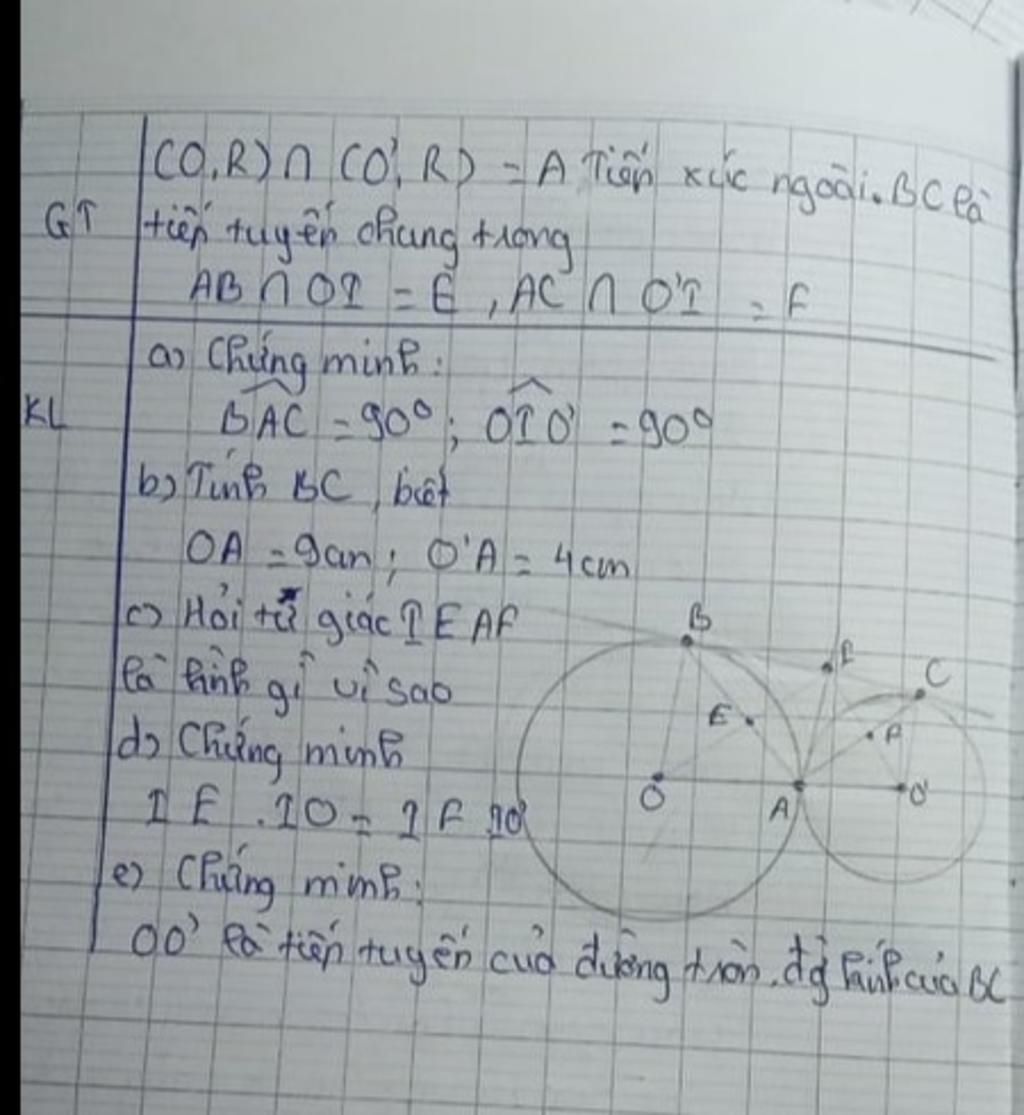 (O,R) ∩ (O', R) = A Tiếp xúc ngoài. BC là
GT tiếp tuyến chung trong
AB ∩ OI = E, AC ∩ O'I = F
a) Chứng minh:
KL BAC = 90°; OIO' = 90°
b) Tính BC, biết
OA = 9cm; O'A = 4cm
c) Hỏi tứ giác IEAF
là hình gì vì sao
d) Chứng minh
IE.IO = IF.IO'
e) Chứng minh:
OO' là tiếp tuyến của đường tròn.
BC
B
I
C
E
F
O
A
O'